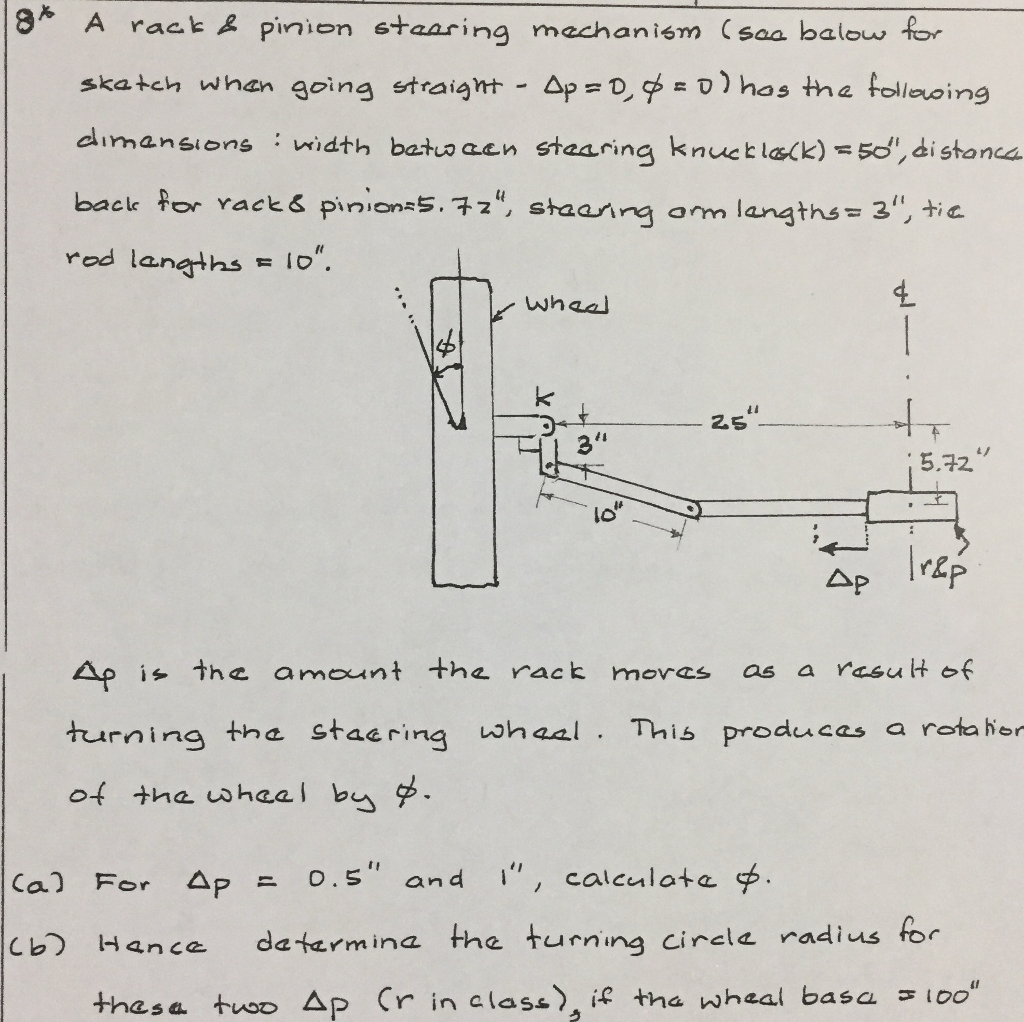 8* A rack & pinion steering mechanism (see below for
sketch when going straight - Δp = 0, ϕ = 0) has the following
dimensions : width between steering knuckles(k) = 50", distance
back for rack & pinion=5.72", steering arm lengths = 3", tie
rod lengths = 10".
wheel
℄
ϕ
k
25"
3"
5.72"
10"
Δp
r&p
Δp is the amount the rack moves as a result of
turning the steering wheel. This produces a rotation
of the wheel by ϕ.
(a) For Δp = 0.5" and 1", calculate ϕ.
(b) Hence determine the turning circle radius for
these two Δp (r in class), if the wheel base = 100"